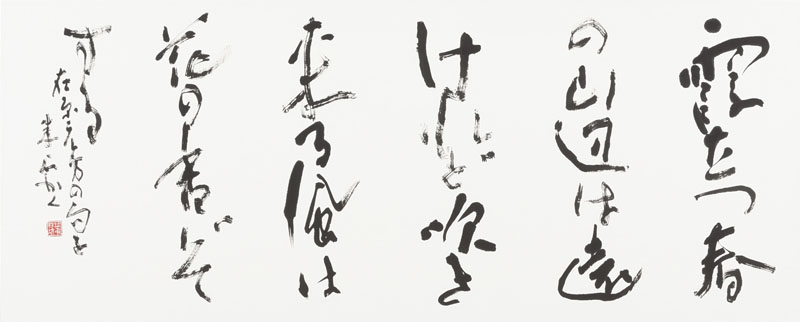 霞立つ春
の山辺は遠
けれど吹き
来る風は
花の香ぞ
する
在原元方の句を